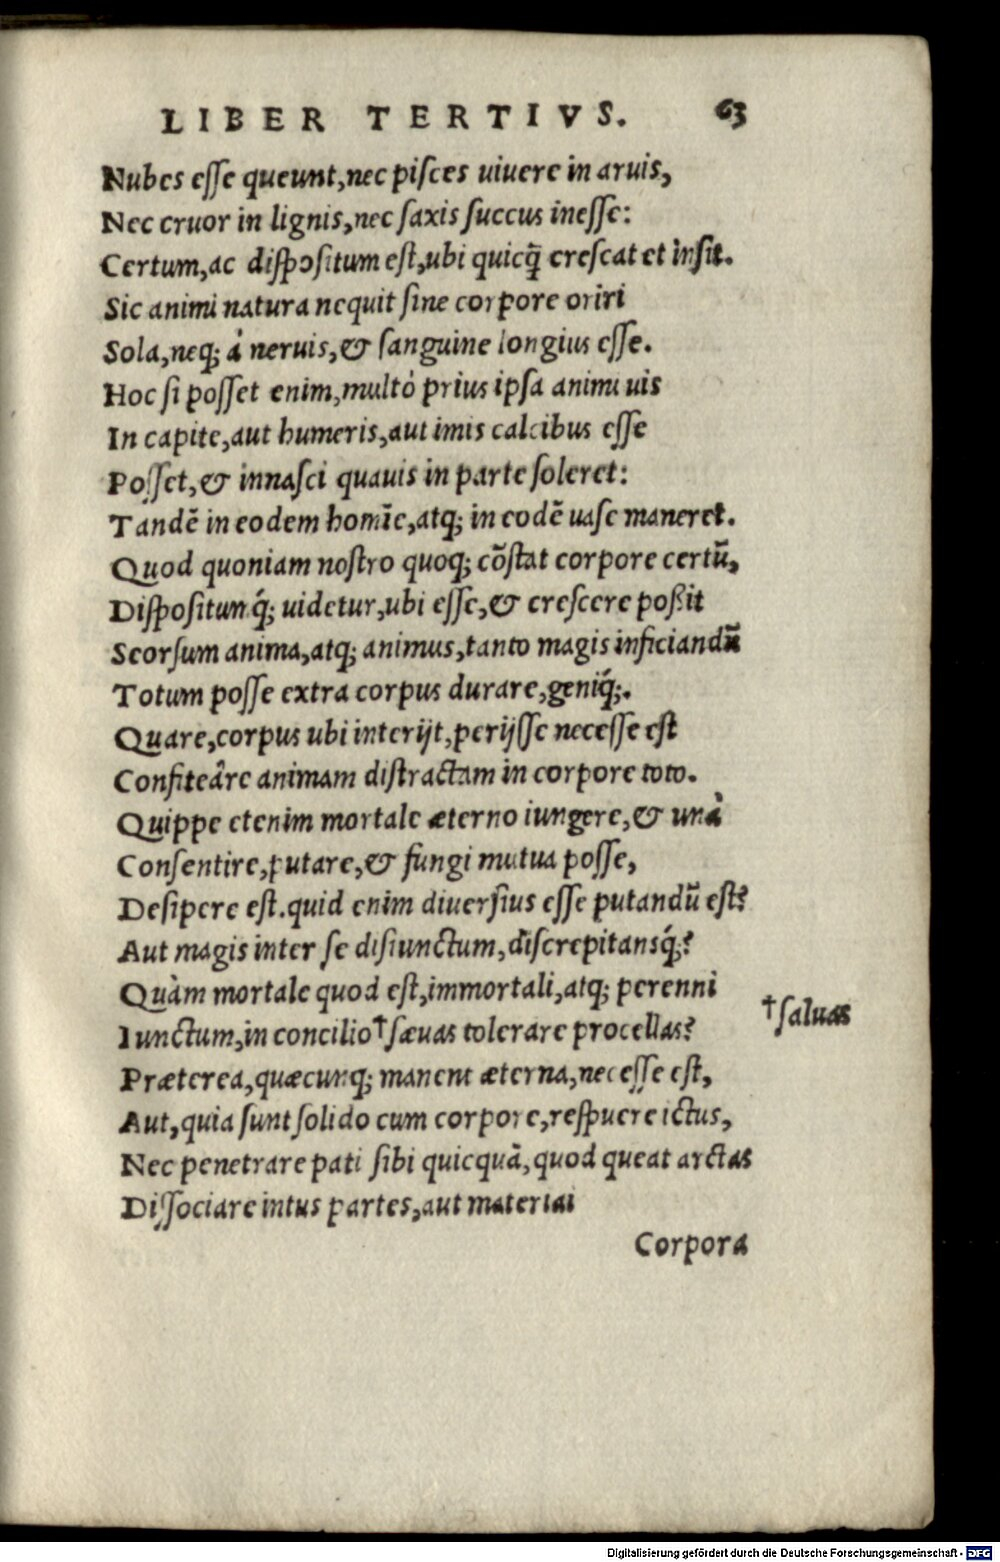 LIBER TERTIVS. 63
Nubes eſſe queunt, nec piſces uiuere in aruis,
Nec cruor in lignis, nec ſaxis ſuccus ineſſe:
Certum, ac diſpoſitum eſt, ubi quicq̃ creſcat et inſit.
Sic animi natura nequit ſine corpore oriri
Sola, neq; à neruis, & ſanguine longius eſſe.
Hoc ſi poſſet enim, multò prius ipſa animi uis
In capite, aut humeris, aut imis calcibus eſſe
Poſſet, & innaſci quauis in parte ſoleret:
Tandē in eodem homīe, atq; in eodē uaſe maneret.
Quod quoniam noſtro quoq; cōſtat corpore certū,
Diſpoſitumq́; uidetur, ubi eſſe, & creſcere poßit
Seorſum anima, atq; animus, tanto magis inficiandū
Totum poſſe extra corpus durare, geniq́;.
Quare, corpus ubi interijt, perijſſe neceſſe eſt
Confiteâre animam diſtractam in corpore toto.
Quippe etenim mortale æterno iungere, & unà
Conſentire, putare, & fungi mutua poſſe,
Deſipere eſt. quid enim diuerſius eſſe putandū eſt?
Aut magis inter ſe diſiunctum, diſcrepitansq́;?
Quàm mortale quod eſt, immortali, atq; perenni
Iunctum, in concilio †ſæuas tolerare procellas?
†ſaluas
Præterea, quæcunq; manent æterna, neceſſe eſt,
Aut, quia ſunt ſolido cum corpore, reſpuere ictus,
Nec penetrare pati ſibi quicquā, quod queat arctas
Diſſociare intus partes, aut materiai
Corpora
Digitalisierung gefördert durch die Deutsche Forschungsgemeinschaft - DFG